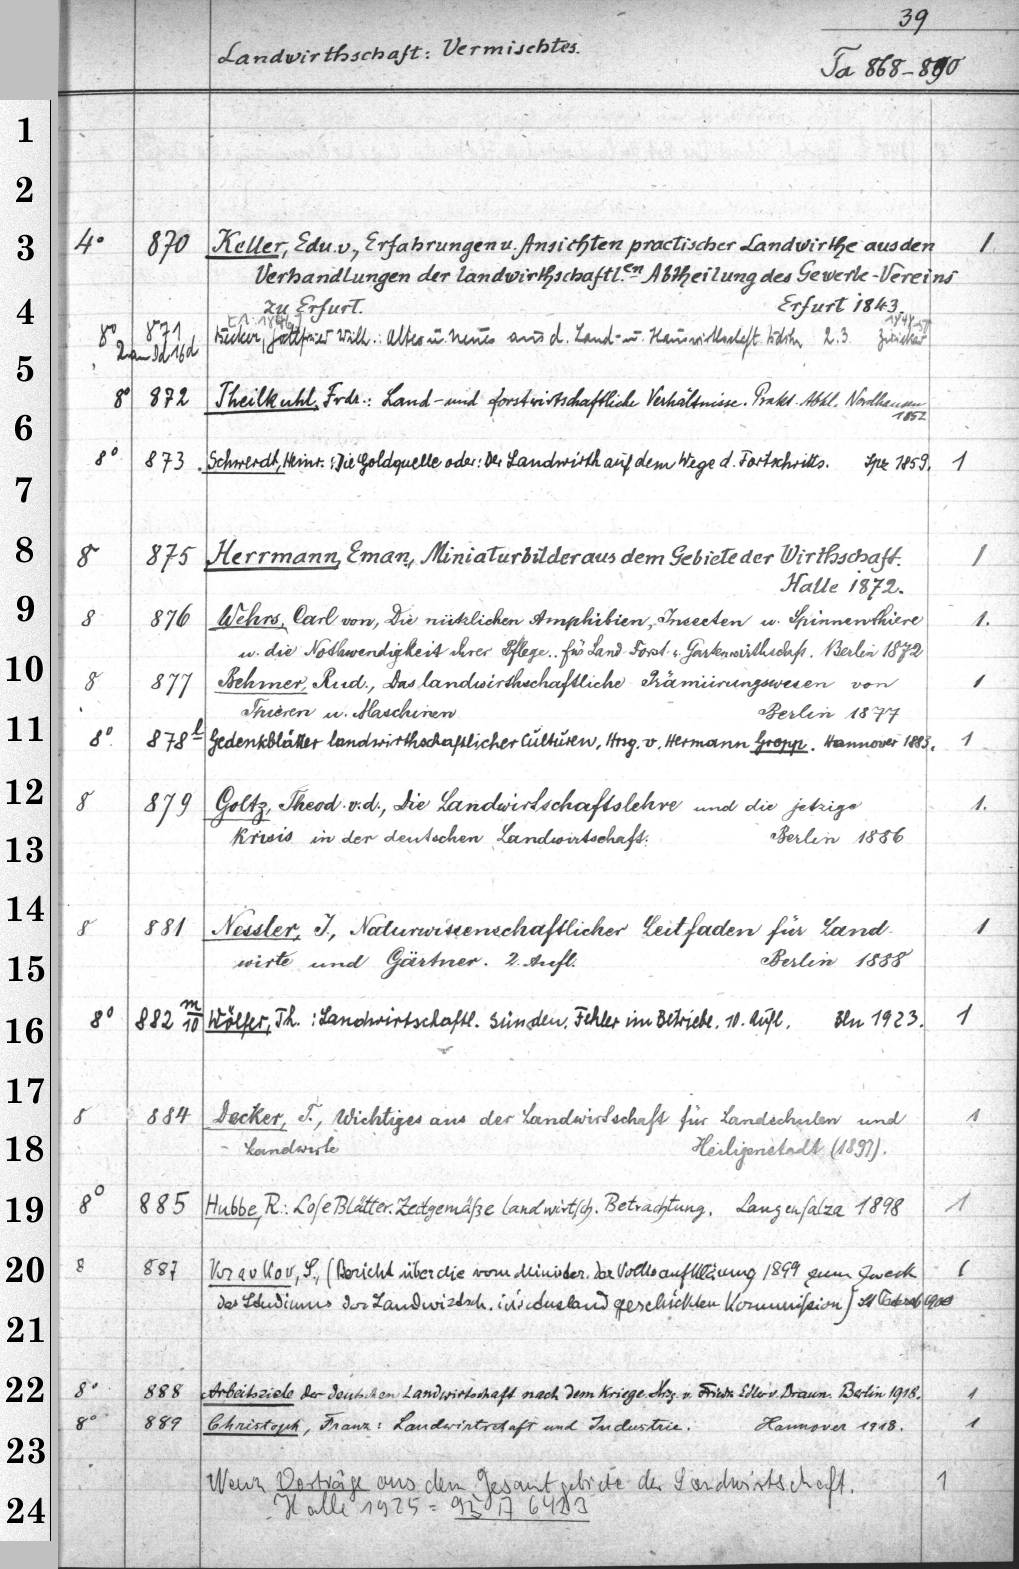 39
Landwirthschaft: Vermischtes.
Ta 868-890
1
2
3
4° 870 Keller, Edu. v., Erfahrungen u. Ansichten practischer Landwirthe aus den 1
Verhandlungen der landwirthschaftl.en Abtheilung des Gewerbe-Vereins
4
zu Erfurt. Erfurt 1843
8° 871 Gottfried Wilh.: Altes u. Neues aus d. Land- u. Hauswirthschaft 2.3. Zwickau
2 an Dd 16d
5
8° 872 Theilkuhl, Frdr.: Land- und forstwirtschaftliche Verhältnisse. Prakt. Abhl. Nordhausen
1852
6
8° 873 Schwerdt, Heinr.: Die Goldquelle oder: Der Landwirth auf dem Wege d. Fortschritts. Lpz 1859. 1
7
8 8 875 Herrmann, Eman., Miniaturbilder aus dem Gebiete der Wirthschaft. 1
Halle 1872.
9 8 876 Wehrs, Carl von, Die nützlichen Amphibien, Insecten u. Spinnenthiere 1.
u. die Nothwendigkeit ihrer Pflege.. für Land- Forst- u. Gartenwirthschaft. Berlin 1872
10 8 877 Behmer, Rud., Das landwirthschaftliche Prämiirungswesen von 1
Thieren u. Maschinen Berlin 1877
11 8° 878 l Gedenkblätter landwirthschaftlicher Culturen, Hrsg. v. Hermann Gropp. Hannover 1883. 1
12 8 879 Goltz, Theod. v. d., Die Landwirtschaftslehre und die jetzige 1.
13 Krisis in der deutschen Landwirtschaft. Berlin 1886
14 8 881 Nessler, J., Naturwissenschaftlicher Leitfaden für Land- 1
15 wirte und Gärtner. 2. Aufl. Berlin 1888
16 8° 882 m/10 Wölfer, Th.: Landwirtschaftl. Sünden. Fehler im Betriebe. 10. Aufl. Bln 1923. 1
17
8 884 Decker, T., Wichtiges aus der Landwirtschaft für Landschulen und 1
18 Landwirte Heiligenstadt (1897).
19 8° 885 Hubbe, R.: Lose Blätter. Zeitgemäße landwirtsch. Betrachtung. Langensalza 1898 1
20 8 887 Kravkov, S., (Bericht über die vom Minister. der Volksaufklärung 1899 zum Zweck 1
des Studiums der Landwirtsch. ins Ausland geschickten Kommission)
21
22 8° 888 Arbeitsziele der deutschen Landwirtschaft nach dem Kriege. Hrsg. v. Friedr. Edler v. Braun. Berlin 1918. 1
8° 889 Christoph, Franz: Landwirtschaft und Industrie. Hannover 1918. 1
23
Vorträge aus dem Gesamtgebiete der Landwirtschaft. 1
24 Halle 1925 =